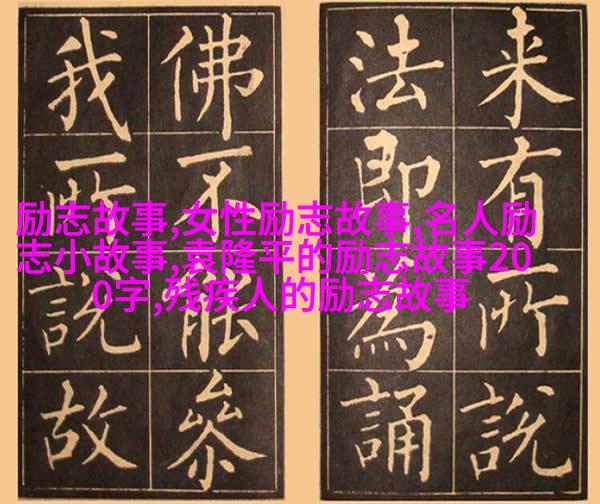 来有所說
法即為誦
佛不能參
我所說故
励志故事,女性励志故事,名人励
志小故事,袁隆平的励志故事20
0字,残疾人的励志故事